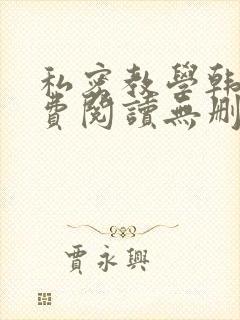 私密教學韩
費閱讀無刪
賈永興